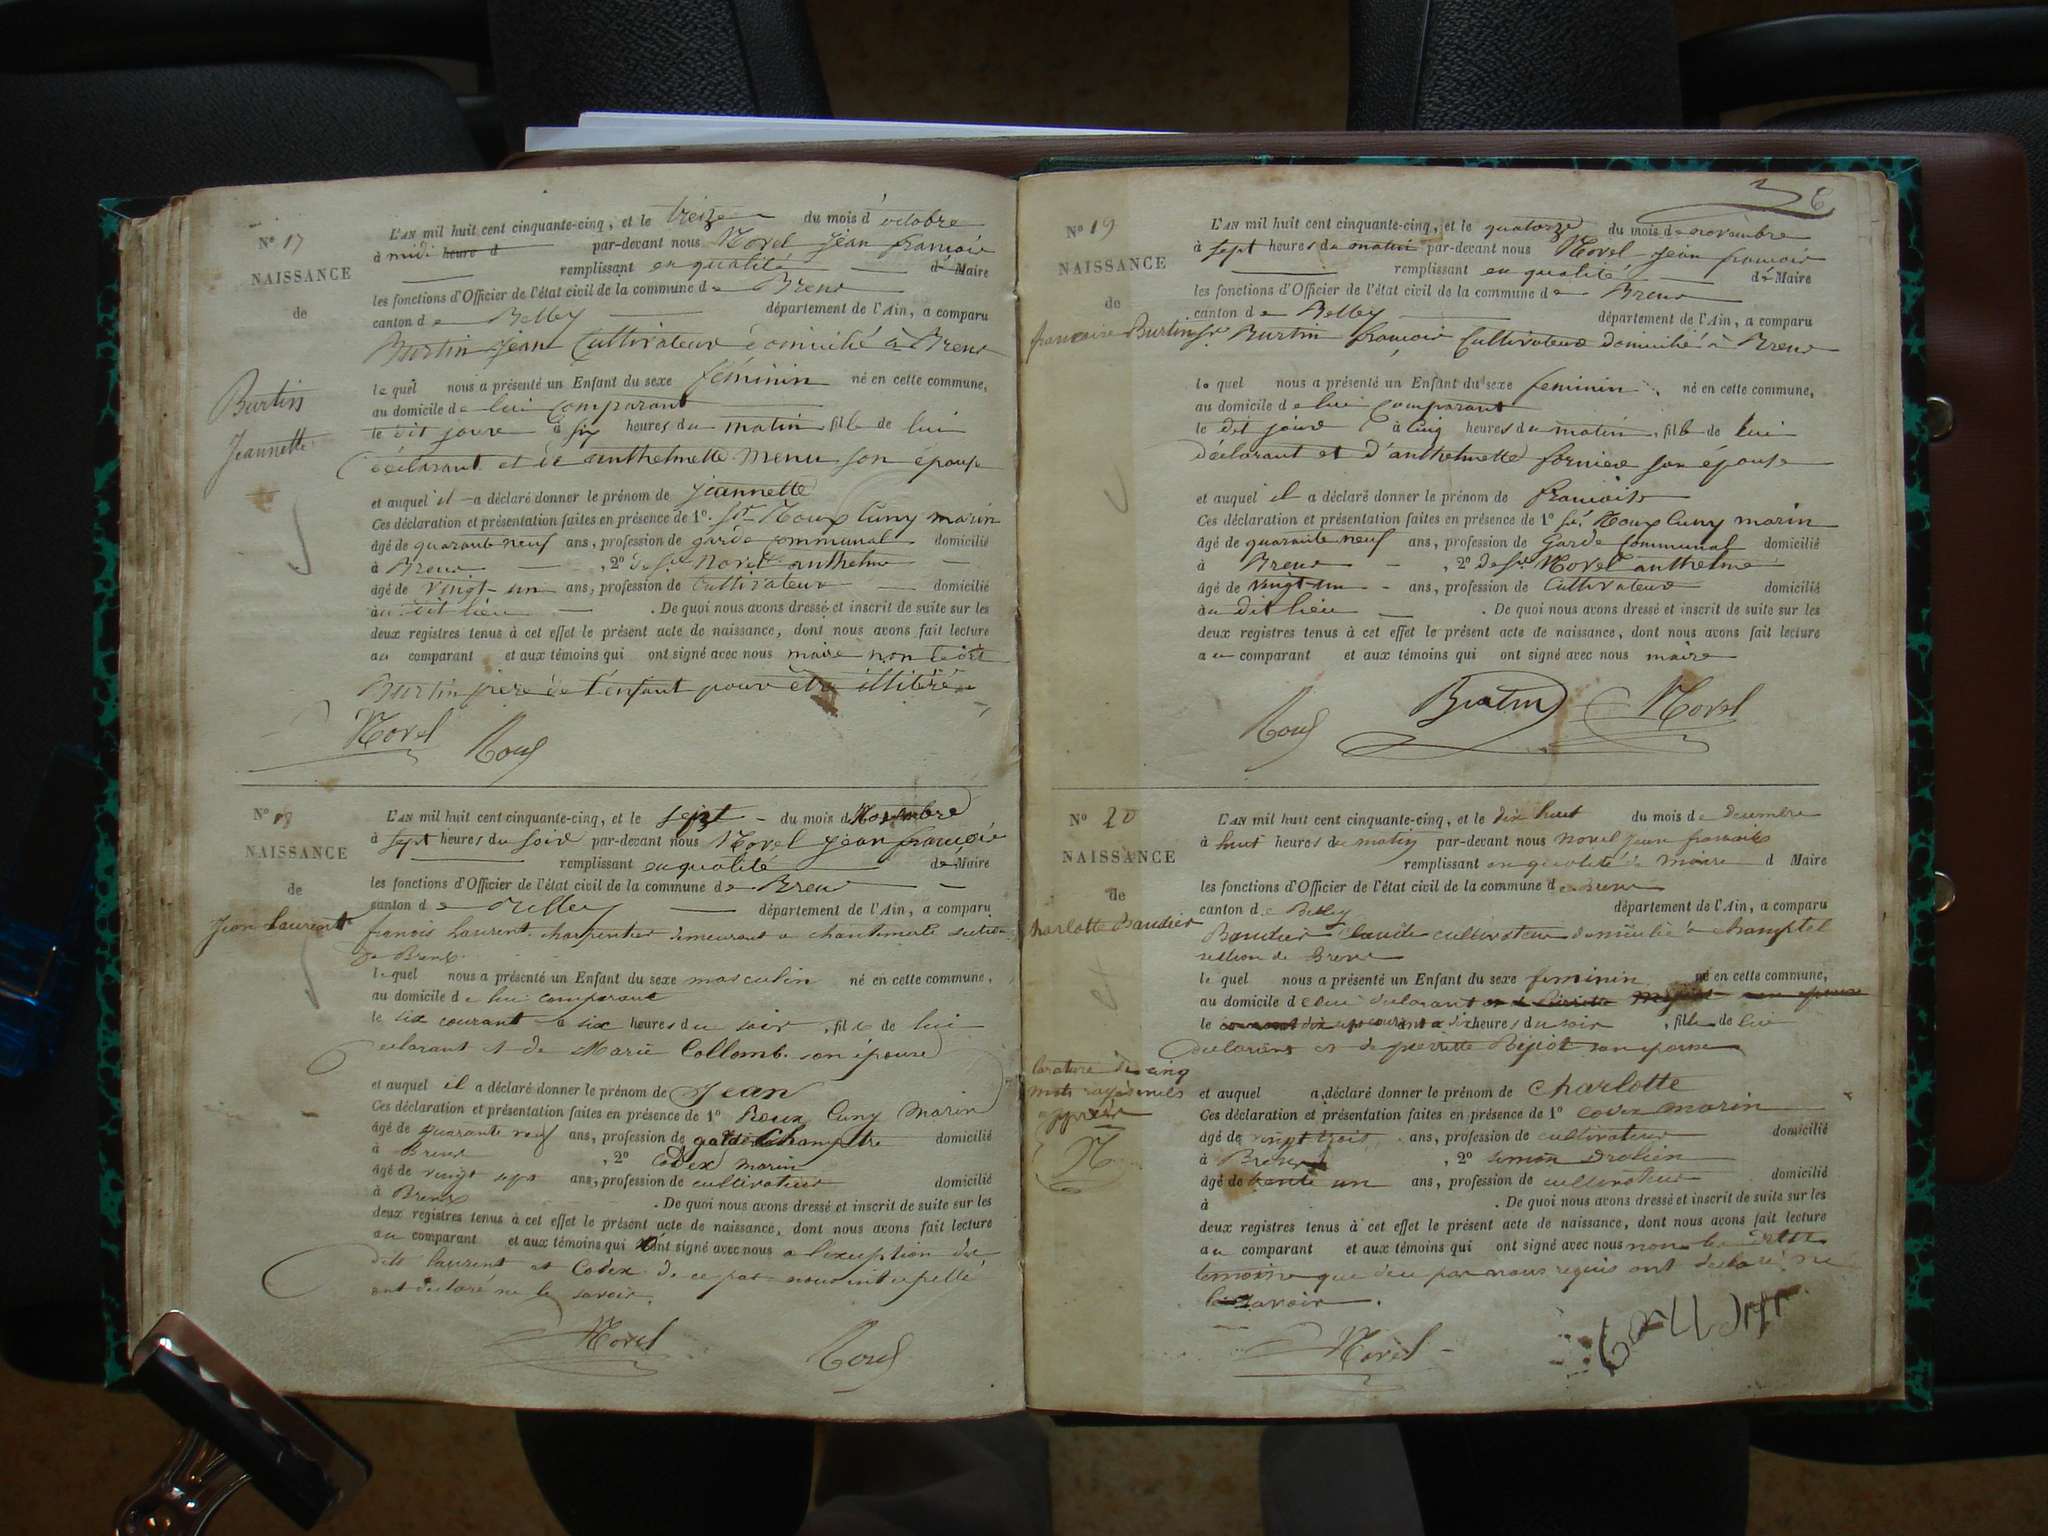 N° 17
NAISSANCE
de
Burtin
Jeannette
L'AN mil huit cent cinquante-cinq, et le treize du mois d'octobre
à midi heure d par-devant nous Morel jean francois
remplissant en qualité de Maire
les fonctions d'Officier de l'état civil de la commune de Brens
canton de Belley département de l'Ain, a comparu
Burtin jean Cultivateur domicilié à Brens
lequel nous a présenté un Enfant du sexe féminin né en cette commune,
au domicile de lui comparant
le dit jour à six heures du matin, fille de lui
déclarant et de anthelmette menu son épouse
et auquel il a déclaré donner le prénom de jeannette
Ces déclaration et présentation faites en présence de 1° Sr Roux Cuny marin
âgé de quarante neuf ans, profession de garde communal domicilié
à Brens, 2° de Sr Morel anthelme
âgé de vingt-un ans, profession de Cultivateur domicilié
au dit lieu. De quoi nous avons dressé et inscrit de suite sur les
deux registres tenus à cet effet le présent acte de naissance, dont nous avons fait lecture
au comparant et aux témoins qui ont signé avec nous maire non le dit
Burtin père de l'enfant pour être illitéré
Morel Roux
N° 18
NAISSANCE
de
Jean Laurent
L'AN mil huit cent cinquante-cinq, et le sept du mois de Novembre
à sept heures du soir par-devant nous Morel jean francois
remplissant en qualité de Maire
les fonctions d'Officier de l'état civil de la commune de Brens
canton de Belley département de l'Ain, a comparu
francois Laurent charpentier demeurant a chantemerle section
de Brens
lequel nous a présenté un Enfant du sexe masculin né en cette commune,
au domicile de lui comparant
le six courant a six heures du soir, fils de lui
declarant et de Marie Collomb son épouse
et auquel il a déclaré donner le prénom de Jean
Ces déclaration et présentation faites en présence de 1° Roux Cuny Marin
âgé de quarante neuf ans, profession de garde Champetre domicilié
à Brens, 2° Codex marin
âgé de vingt ans, profession de cultivateur domicilié
à Brens. De quoi nous avons dressé et inscrit de suite sur les
deux registres tenus à cet effet le présent acte de naissance, dont nous avons fait lecture
au comparant et aux témoins qui ont signé avec nous a l'exception des
dits laurent et Codex de ce par nous interpellé
ont declaré ne le savoir.
Morel Roux
6
N° 19
NAISSANCE
de
francoise Burtin
L'AN mil huit cent cinquante-cinq, et le quatorze du mois de novembre
à sept heures du matin par-devant nous Morel jean francois
remplissant en qualité de Maire
les fonctions d'Officier de l'état civil de la commune de Brens
canton de Belley département de l'Ain, a comparu
Sr Burtin francois Cultivateur domicilié à Brens
lequel nous a présenté un Enfant du sexe feminin né en cette commune,
au domicile de lui comparant
le dit jour à cinq heures du matin, fille de lui
déclarant et d'anthelmette fornier son épouse
et auquel il a déclaré donner le prénom de francoise
Ces déclaration et présentation faites en présence de 1° Sr Roux Cuny marin
âgé de quarante neuf ans, profession de Garde Communal domicilié
à Brens, 2° de Sr Morel anthelme
âgé de vingt-un ans, profession de Cultivateur domicilié
au dit lieu. De quoi nous avons dressé et inscrit de suite sur les
deux registres tenus à cet effet le présent acte de naissance, dont nous avons fait lecture
au comparant et aux témoins qui ont signé avec nous maire
Roux Burtin Morel
N° 20
NAISSANCE
de
Charlotte Baudier
L'AN mil huit cent cinquante-cinq, et le dix huit du mois de decembre
à huit heures du matin par-devant nous Morel jean francois
remplissant en qualité de Maire d Maire
les fonctions d'Officier de l'état civil de la commune de Brens
canton de Belley département de l'Ain, a comparu
Baudier Claude cultivateur domicilié à champtel
section de Brens
lequel nous a présenté un Enfant du sexe feminin né en cette commune,
au domicile de lui declarant son epouse
le dix sept courant a dix heures du soir, fille de lui
declarant et de pierrette son epouse
la rature de cinq
mots rayés nuls
approuvée
M
et auquel a déclaré donner le prénom de Charlotte
Ces déclaration et présentation faites en présence de 1° Codex marin
âgé de vingt trois ans, profession de cultivateur domicilié
à Brens, 2° simon
âgé de trente un ans, profession de cultivateur domicilié
à . De quoi nous avons dressé et inscrit de suite sur les
deux registres tenus à cet effet le présent acte de naissance, dont nous avons fait lecture
au comparant et aux témoins qui ont signé avec nous non les dits
temoins que de ce par nous requis ont declaré ne
le savoir.
Morel